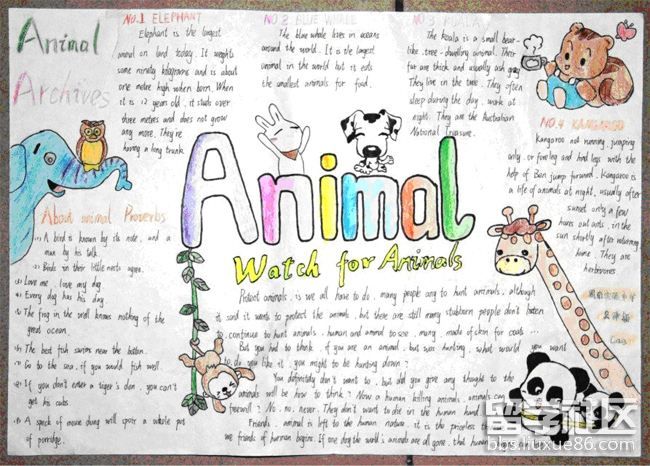 Animal
Archives
NO.1 ELEPHANT
Elephant is the largest
animal on land today. It weights
some ninety kilograms and is about
one metre high when born. When
it is 12 years old, it stands over
three meters and does not grow
any more. They're
having a long trunk.
NO 2 BLUE WHALE
The blue whale lives in oceans
around the world. It is the largest
animal in the world but it eats
the smallest animals for food.
NO 3
The koala is a small bear-
like, tree-dwelling animal. Their
fur are thick and usually ash gray
They live in the trees. They often
sleep during the day, work at
night. They are the Australian
National Treasure.
NO.4 KANGAROO
Kangaroo not running jumping
only, or foreleg and hind legs with the
help of Ben jump forward. Kangaroo is
a life of animals at night, usually after
sunset only a few
hours out
sun shortly after returning
home. They are
herbivores
About animal Proverbs
(1) A bird is known by its note, and a
man by his talk.
(2) Birds in their little nests agree.
(3) Love me, love my dog
(4) Every dog has his day.
(5) The frog in the well knows nothing of the
great ocean.
(6) The best fish swims near the bottom.
(7) Go to the sea, if you would fish well.
(8) If you don't enter a tiger's den, you can't
get his cubs.
(9) A speck of mouse dung will spoil a whole pot
of porridge.
Animal
Watch for Animals
Protect animals, is we all have to do. many people ang to hunt animals, although
it said it wants to protect the animals, but there are still many stubborn people don't listen
to, continue to hunt animals, human and animal to see, many, made of skin for coats ...
But you had to think: if you are an animal, but was hunting, what would you want
to do you like it, you might be hunting down?
You definitely don't want to, but did you give any thought to the
animals will be how to think? Now a human killing animals, animals can
farewell? No, no, never. They don't want to die in the human hand
Friends, animal is left to the human nature, it is the priceless
we friends of human begins If one day the world's animals are all gone, that human
留学社区
bbs.liuxue86.com